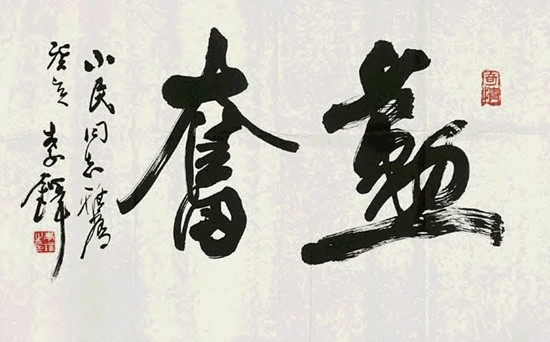 勤奮
小民同志雅屬
癸亥 李鐸